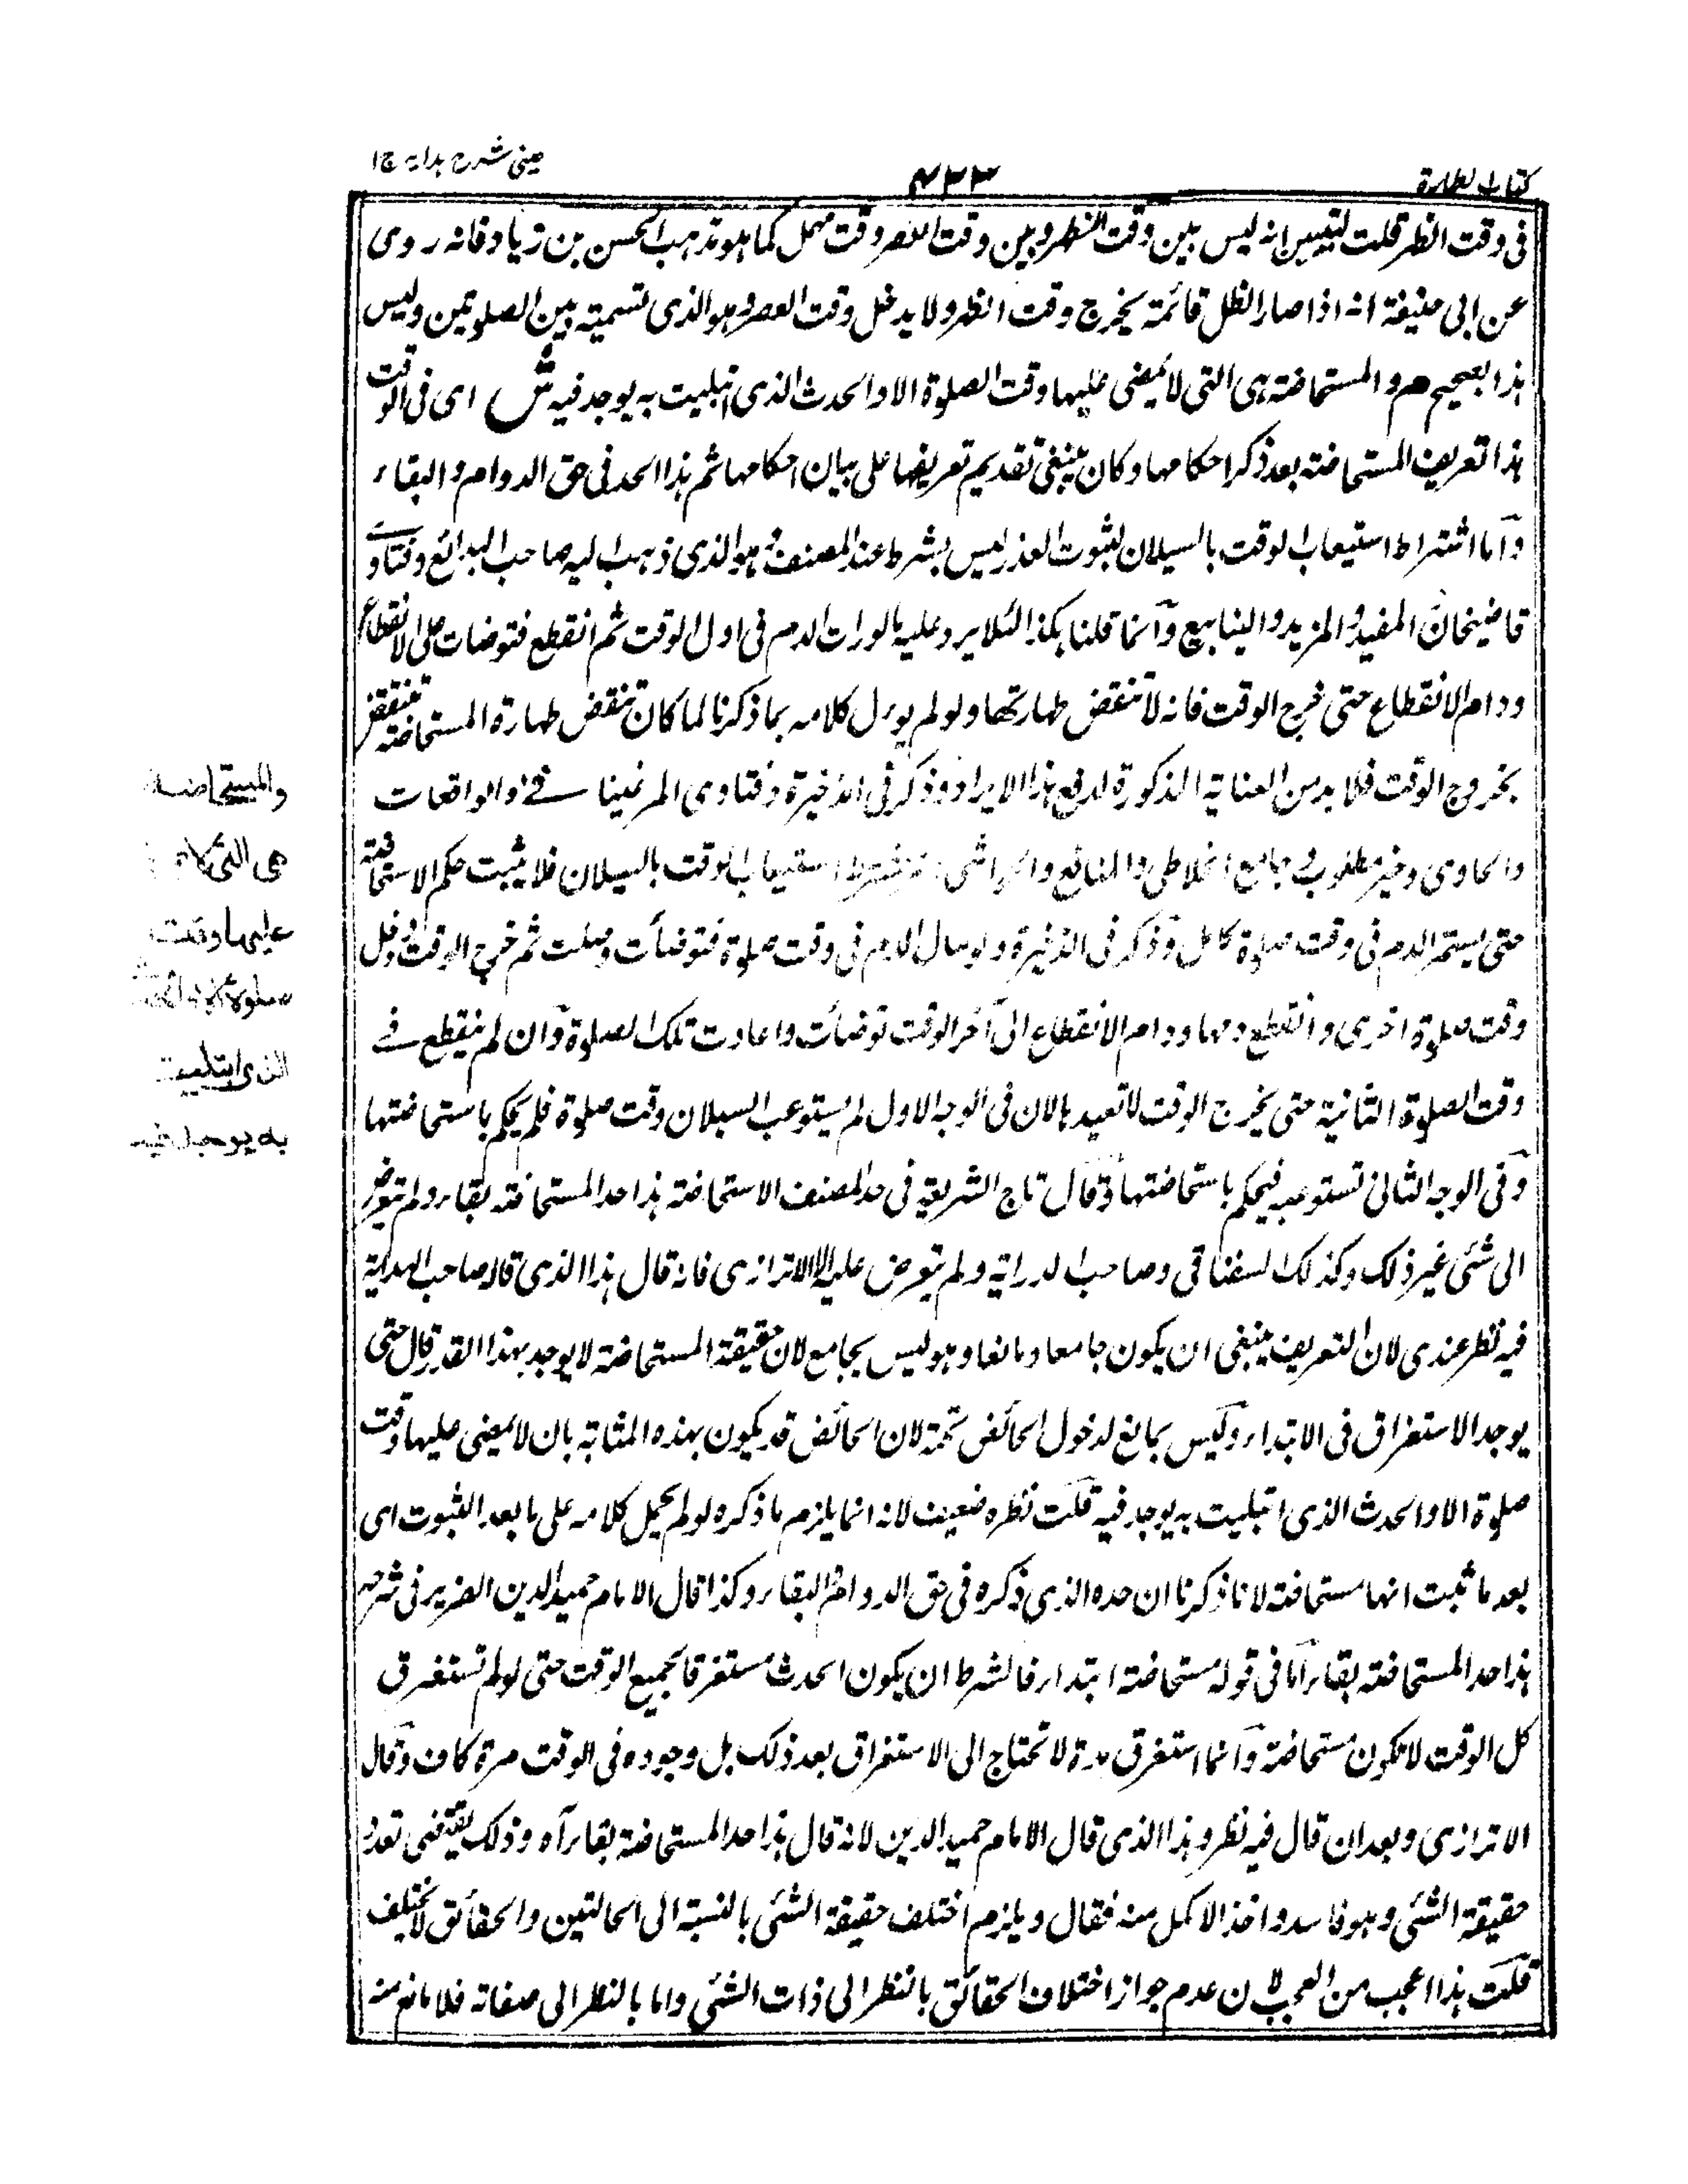 كتاب الطهارة
٤٣٣
عینی شرح هدایه ج۱
فى وقت الظهر قلت لتبيين انه ليس بين وقت الظهر وبين وقت العصر وقت مهمل كما هو مذهب الحسن بن زياد فانه روى
عن ابى حنيفة انه اذا صار الظل قائمة يخرج وقت الظهر ولا يدخل وقت العصر وهو الذى تسميته بين الصلوتين وليس
هذا بصحيح م والمستحاضة هى التى لا يمضى عليها وقت الصلوة الا والحدث الذى ابتليت به يوجد فيه ش اى فى الوقت
هذا تعريف المستحاضة بعد ذكر احكامها وكان ينبغى تقديم تعريفها على بيان احكامها ثم هذا الحد فى حق الدوام والبقاء
وآما اشتراط استيعاب الوقت بالسيلان لثبوت العذر ليس بشرط عند المصنف وهو الذى ذهب اليه صاحب البدائع وفتاوے
قاضيخان والمفيد والمزيد والينابيع وآنما قلنا هكذا لئلا يرد عليه ما لو رات الدم فى اول الوقت ثم انقطع فتوضات على الانقطاع
ودام الانقطاع حتى خرج الوقت فانه لا تنقض طهارتها ولو لم يورل كلامه بما ذكرنا لما كان تنقض طهارة المستحاضة تنتقض
بخروج الوقت فلا بد من العناية المذكورة لدفع هذا الايراد وذكر فى الذخيرة وفتاوى المرغينا نے والواقعات
والحاوى وخير مطلوب وجامع الخلاطى والمنافع والحواشى استيعاب الوقت بالسيلان فلا يثبت حكم الاستحاضة
حتى يستمر الدم فى وقت صلوة كامل وذكر فى الذخيرة ولو سال الدم فى وقت صلوة فتوضأت وصلت ثم خرج الوقت ودخل
وقت صلوة اخرى وانقطع دمها ودام الانقطاع الى آخر الوقت توضأت واعادت تلك الصلوة وآن لم ينقطع فے
وقت الصلوة الثانية حتى يخرج الوقت لا تعيدها لان فى الوجه الاول لم يستوعب السيلان وقت صلوة فلم يحكم باستحاضتها
وفى الوجه الثانى تستوعبه فيحكم باستحاضتها وقال تاج الشريعة فى حد المصنف الاستحاضة هذا حد المستحاضة بقاء ولم يتعرض
الى شئى غير ذلك وكذلك السغناقى وصاحب الدراية ولم يتعرض عليه الا الاترازى فانه قال هذا الذى قاله صاحب الهداية
فيه نظر عندى لان التعريف ينبغى ان يكون جامعا ومانعا وهو ليس بجامع لان حقيقة المستحاضة لا يوجد بهذا القدر قال حتى
يوجد الاستغراق فى الابتداء وليس بمانع لدخول الحائض تحته لان الحائض قد يكون بهذه المثابة بان لا يمضى عليها وقت
صلوة الا والحدث الذى ابتليت به يوجد فيه قلت نظره ضعيف لانه انما يلزم ما ذكره لو لم يحمل كلامه على ما بعد الثبوت اى
بعد ما ثبت انها مستحاضة لانا ذكرنا ان حده الذى ذكره فى حق الدوام والبقاء وكذا قال الامام حميد الدين الضرير فى شرحه
هذا حد المستحاضة بقاء آما فى قوله مستحاضة ابتداء فالشرط ان يكون الحدث مستغرقا لجميع الوقت حتى لو لم تستغرق
كل الوقت لا تكون مستحاضة وآنما استغرق مرة لا تحتاج الى الاستغراق بعد ذلك بل وجوده فى الوقت مرة كاف وقال
الاترازى وبعد ان قال فيه نظر وهذا الذى قال الامام حميد الدين لانه قال هذا حد المستحاضة بقاء آه وذلك يقتضى تعدد
حقيقة الشئى وهو فاسد واخذ الاكمل منه فقال ويلزم اختلف حقيقة الشئى بالنسبة الى الحالتين والحقائق لا يختلف
قلت هذا اعجب من العجب لان عدم جواز اختلاف الحقائق بالنظر الى ذات الشئى واما بالنظر الى صفاته فلا مانع منه
والمستحاضة
هى التى لا
عليها وقت
صلوة الا
الذى ابتليت
به يوجد فيه